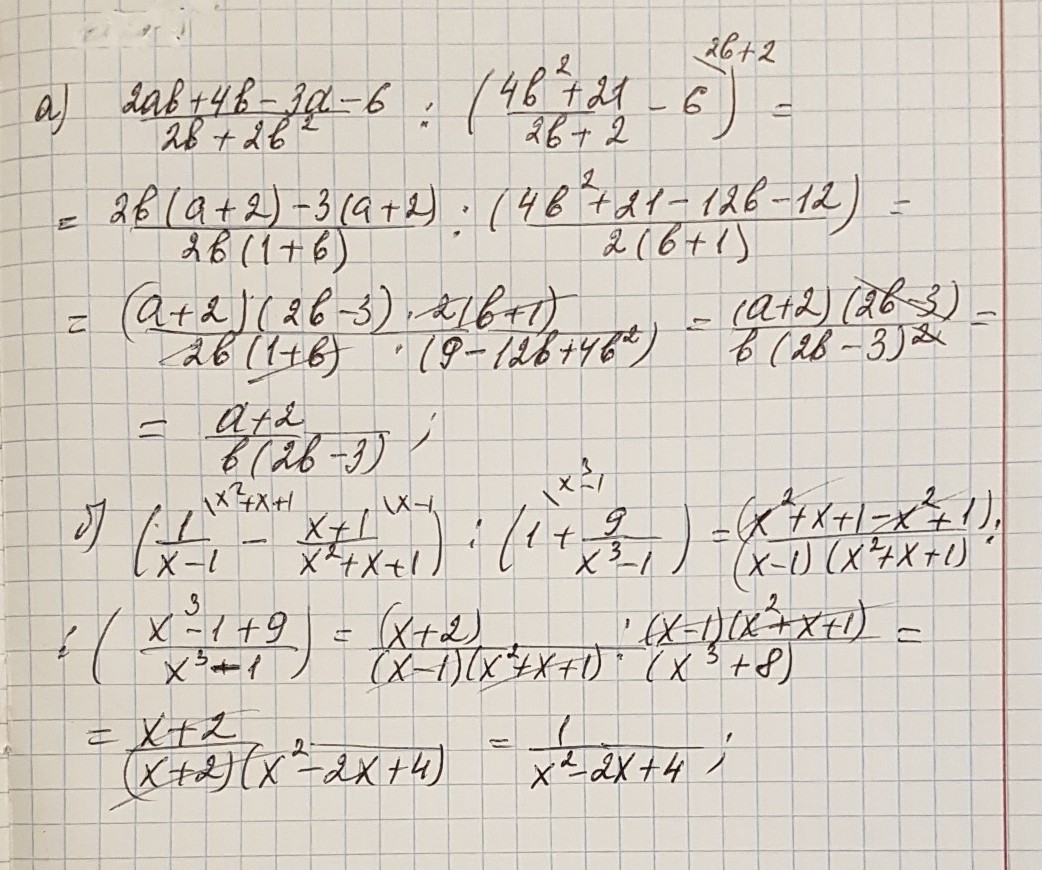 а) (2ab+4b-3a-6)/(2b+2b²) : ((4b²+21)/(2b+2) - 6\2b+2) =
= (2b(a+2)-3(a+2))/(2b(1+b)) : ((4b²+21-12b-12)/(2(b+1))) =
= ((a+2)(2b-3)·2(b+1))/(2b(1+b)·(9-12b+4b²)) = ((a+2)(2b-3))/(b(2b-3)²) =
= (a+2)/(b(2b-3));
б) (1/(x-1) \x²+x+1 - (x+1)/(x²+x+1) \x-1) : (1 \x³-1 + 9/(x³-1)) = (x²+x+1-x²+1)/((x-1)(x²+x+1)) :
: ((x³-1+9)/(x³-1)) = (x+2)/((x-1)(x²+x+1)) : ((x-1)(x²+x+1))/(x³+8) =
= (x+2)/((x+2)(x²-2x+4)) = 1/(x²-2x+4);